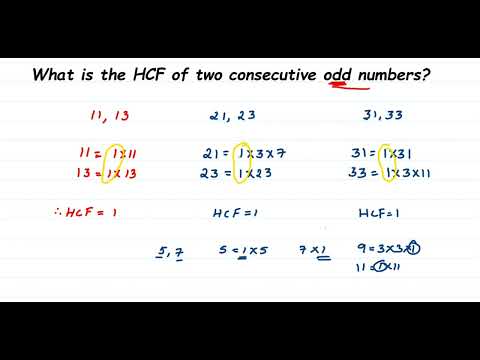 What is the HCF of two consecutive odd numbers?
11, 13 21, 23 31, 33
11 = 1×11 21 = 1×3×7 31 = 1×31
13 = 1×13 23 = 1×23 33 = 1×3×11
∴ HCF = 1 HCF = 1 HCF = 1
5, 7 5 = 1×5 7×1 9 = 3×3×1
11 = 1×11